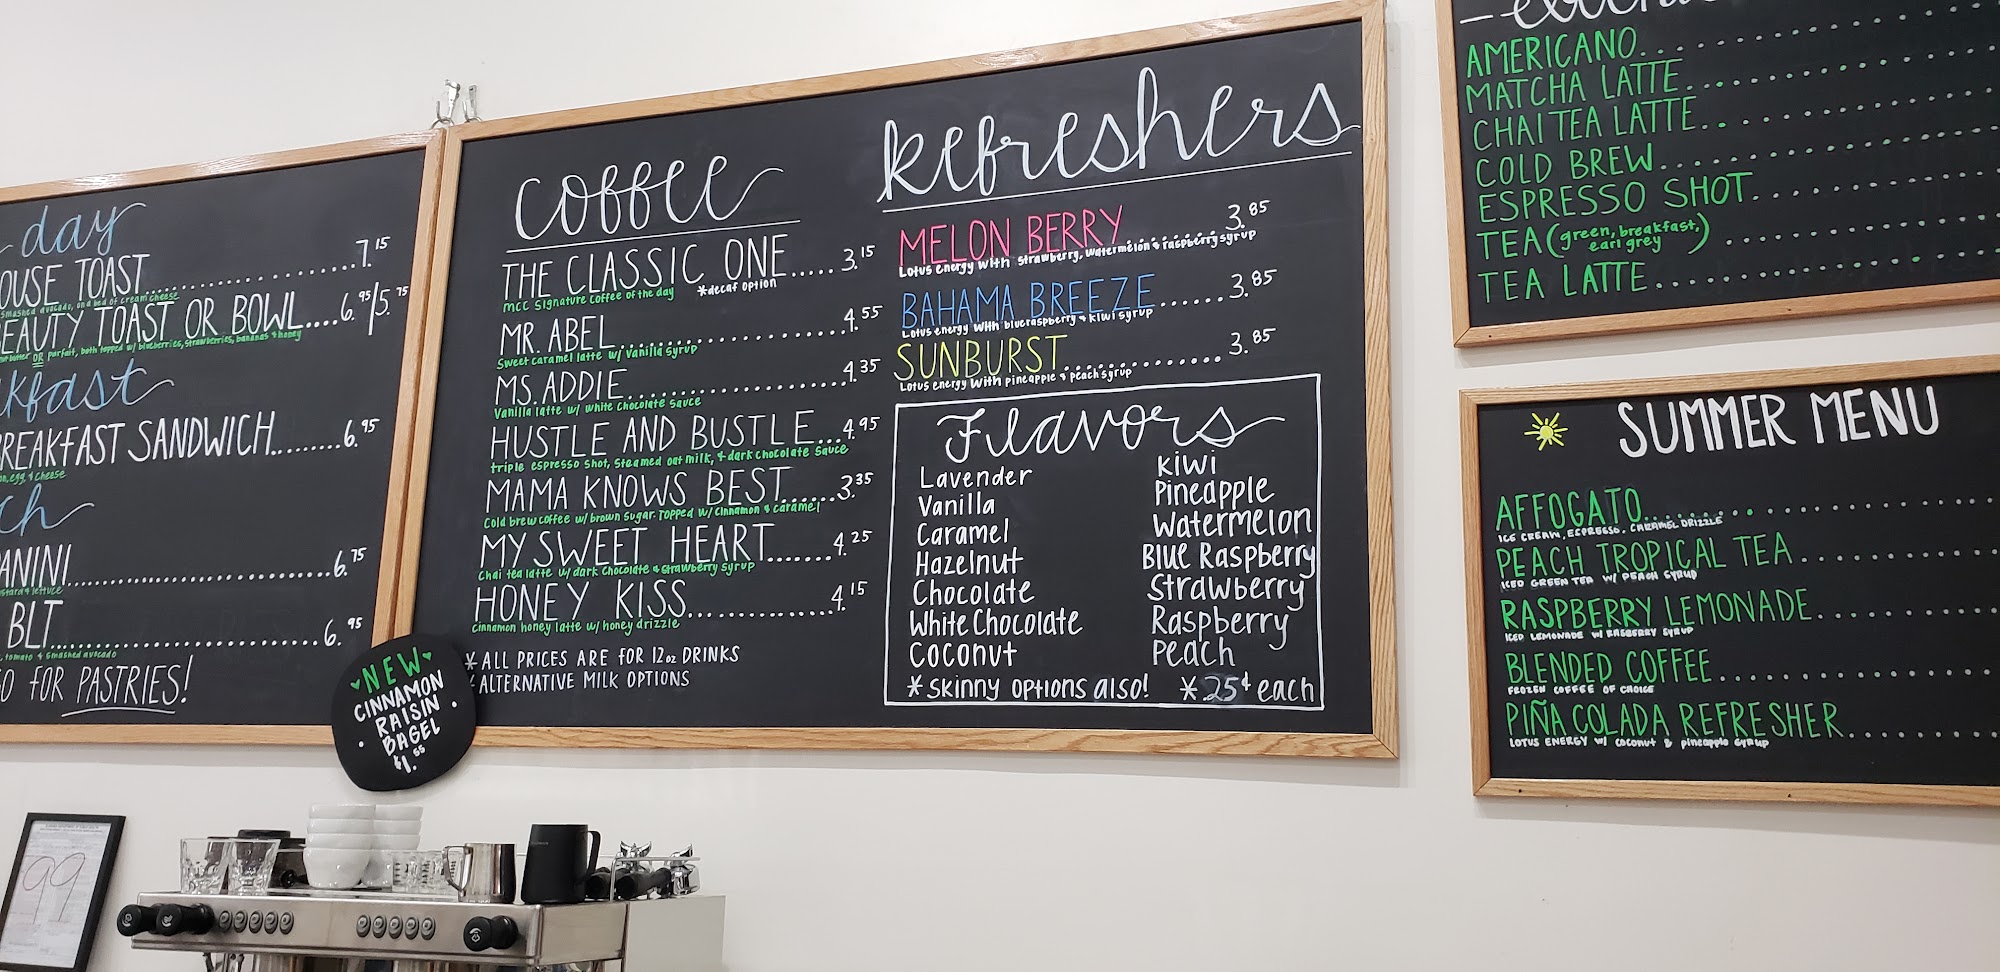 day
OUSE TOAST 7.15
smashed avocado, on a bed of cream cheese
BEAUTY TOAST OR BOWL....6.95/5.75
butter OR parfait, both topped w/ blueberries, strawberries, bananas & honey
kfast
BREAKFAST SANDWICH 6.95
egg & cheese
ch
ANINI 6.75
mustard & lettuce
BLT 6.95
tomato & smashed avocado
GO FOR PASTRIES!
NEW
CINNAMON
RAISIN
BAGEL
$1.55
99
coffee
THE CLASSIC ONE.....3.15
MCC Signature coffee of the day *decaf option
MR. ABEL 4.55
Sweet caramel latte w/ Vanilla Syrup
MS. ADDIE 4.35
Vanilla latte w/ White Chocolate Sauce
HUSTLE AND BUSTLE...4.95
triple espresso shot, steamed oat milk, & dark chocolate sauce
MAMA KNOWS BEST......3.35
Cold brew coffee w/ brown sugar. Topped w/ Cinnamon & Caramel
MY SWEET HEART.......4.25
Chai tea latte w/ dark Chocolate & Strawberry syrup
HONEY KISS 4.15
Cinnamon honey latte w/ honey drizzle
*ALL PRICES ARE FOR 12oz DRINKS
*ALTERNATIVE MILK OPTIONS
Refreshers
MELON BERRY 3.85
Lotus energy with strawberry, watermelon & raspberry syrup
BAHAMA BREEZE......3.85
Lotus energy with blue raspberry & kiwi syrup
SUNBURST 3.85
Lotus energy with pineapple & peach syrup
Flavors
Lavender
Vanilla
Caramel
Hazelnut
Chocolate
White Chocolate
Coconut
Kiwi
Pineapple
Watermelon
Blue Raspberry
Strawberry
Raspberry
Peach
*Skinny options also! *.25¢ each
AMERICANO
MATCHA LATTE
CHAI TEA LATTE
COLD BREW
ESPRESSO SHOT
TEA (green, breakfast, earl grey)
TEA LATTE
SUMMER MENU
AFFOGATO
ICE CREAM, ESPRESSO, CARAMEL DRIZZLE
PEACH TROPICAL TEA
ICED GREEN TEA W/ PEACH SYRUP
RASPBERRY LEMONADE
ICED LEMONADE W/ RASBERRY SYRUP
BLENDED COFFEE
FROZEN COFFEE OF CHOICE
PIÑA COLADA REFRESHER
LOTUS ENERGY w/ coconut & pineapple syrup